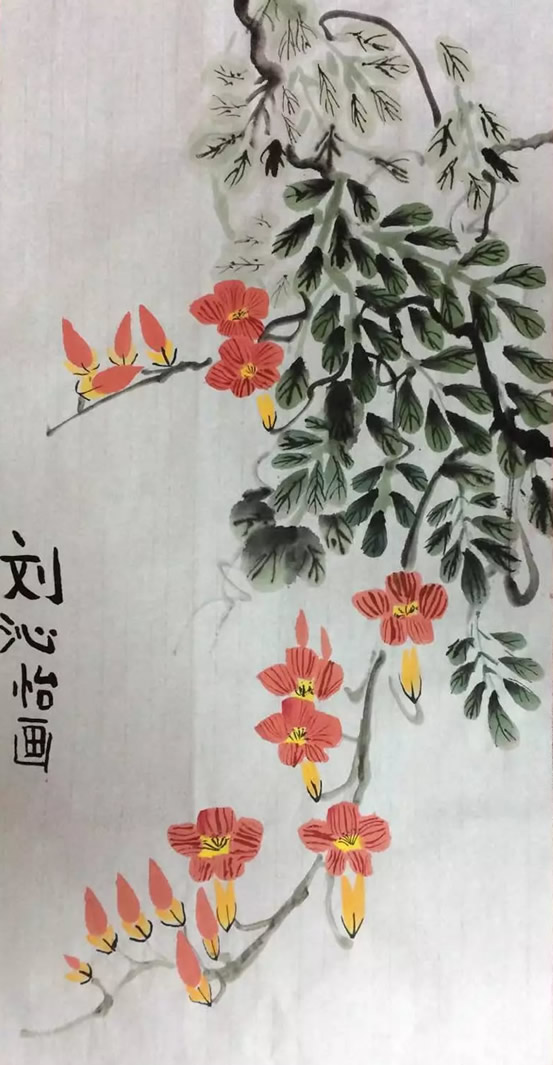 刘沁怡画